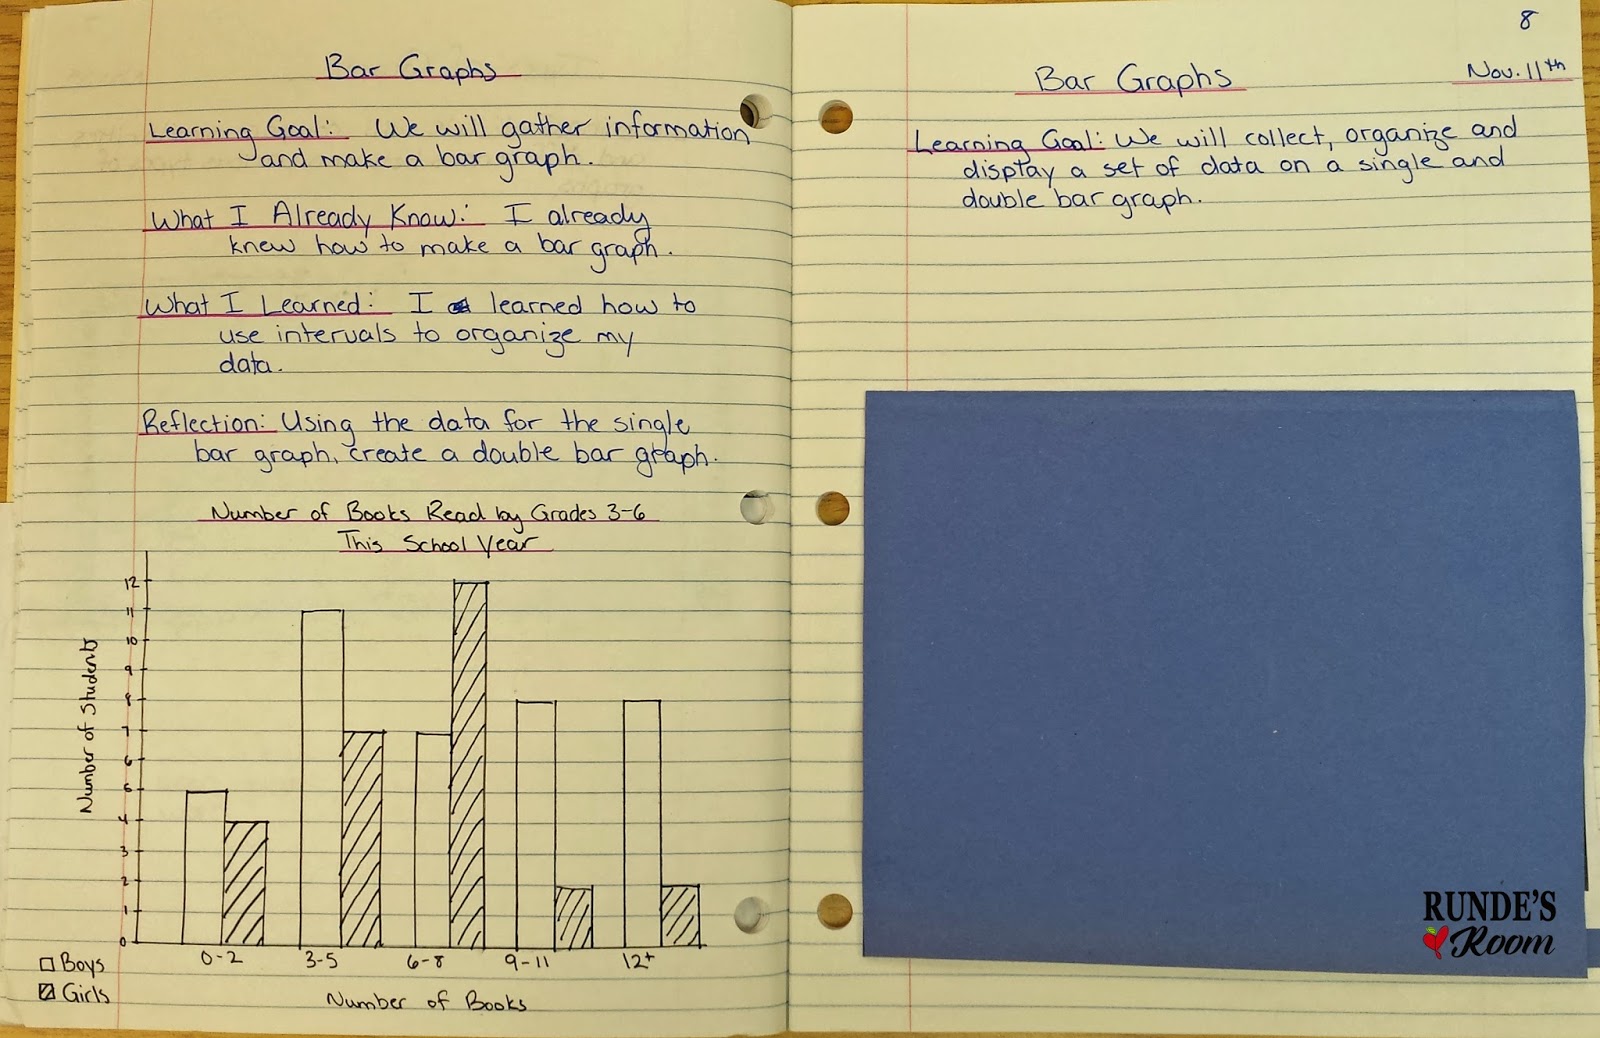 Bar Graphs
Learning Goal: We will gather information
and make a bar graph.
What I Already Know: I already
knew how to make a bar graph.
What I Learned: I learned how to
use intervals to organize my
data.
Reflection: Using the data for the single
bar graph, create a double bar graph.
Number of Books Read by Grades 3-6
This School Year
12
11
10
9
8
7
6
5
4
3
2
1
0
Number of Students
0-2 3-5 6-8 9-11 12+
Boys
Girls
Number of Books
8
Nov. 11th
Bar Graphs
Learning Goal: We will collect, organize and
display a set of data on a single and
double bar graph.
RUNDE'S
Room